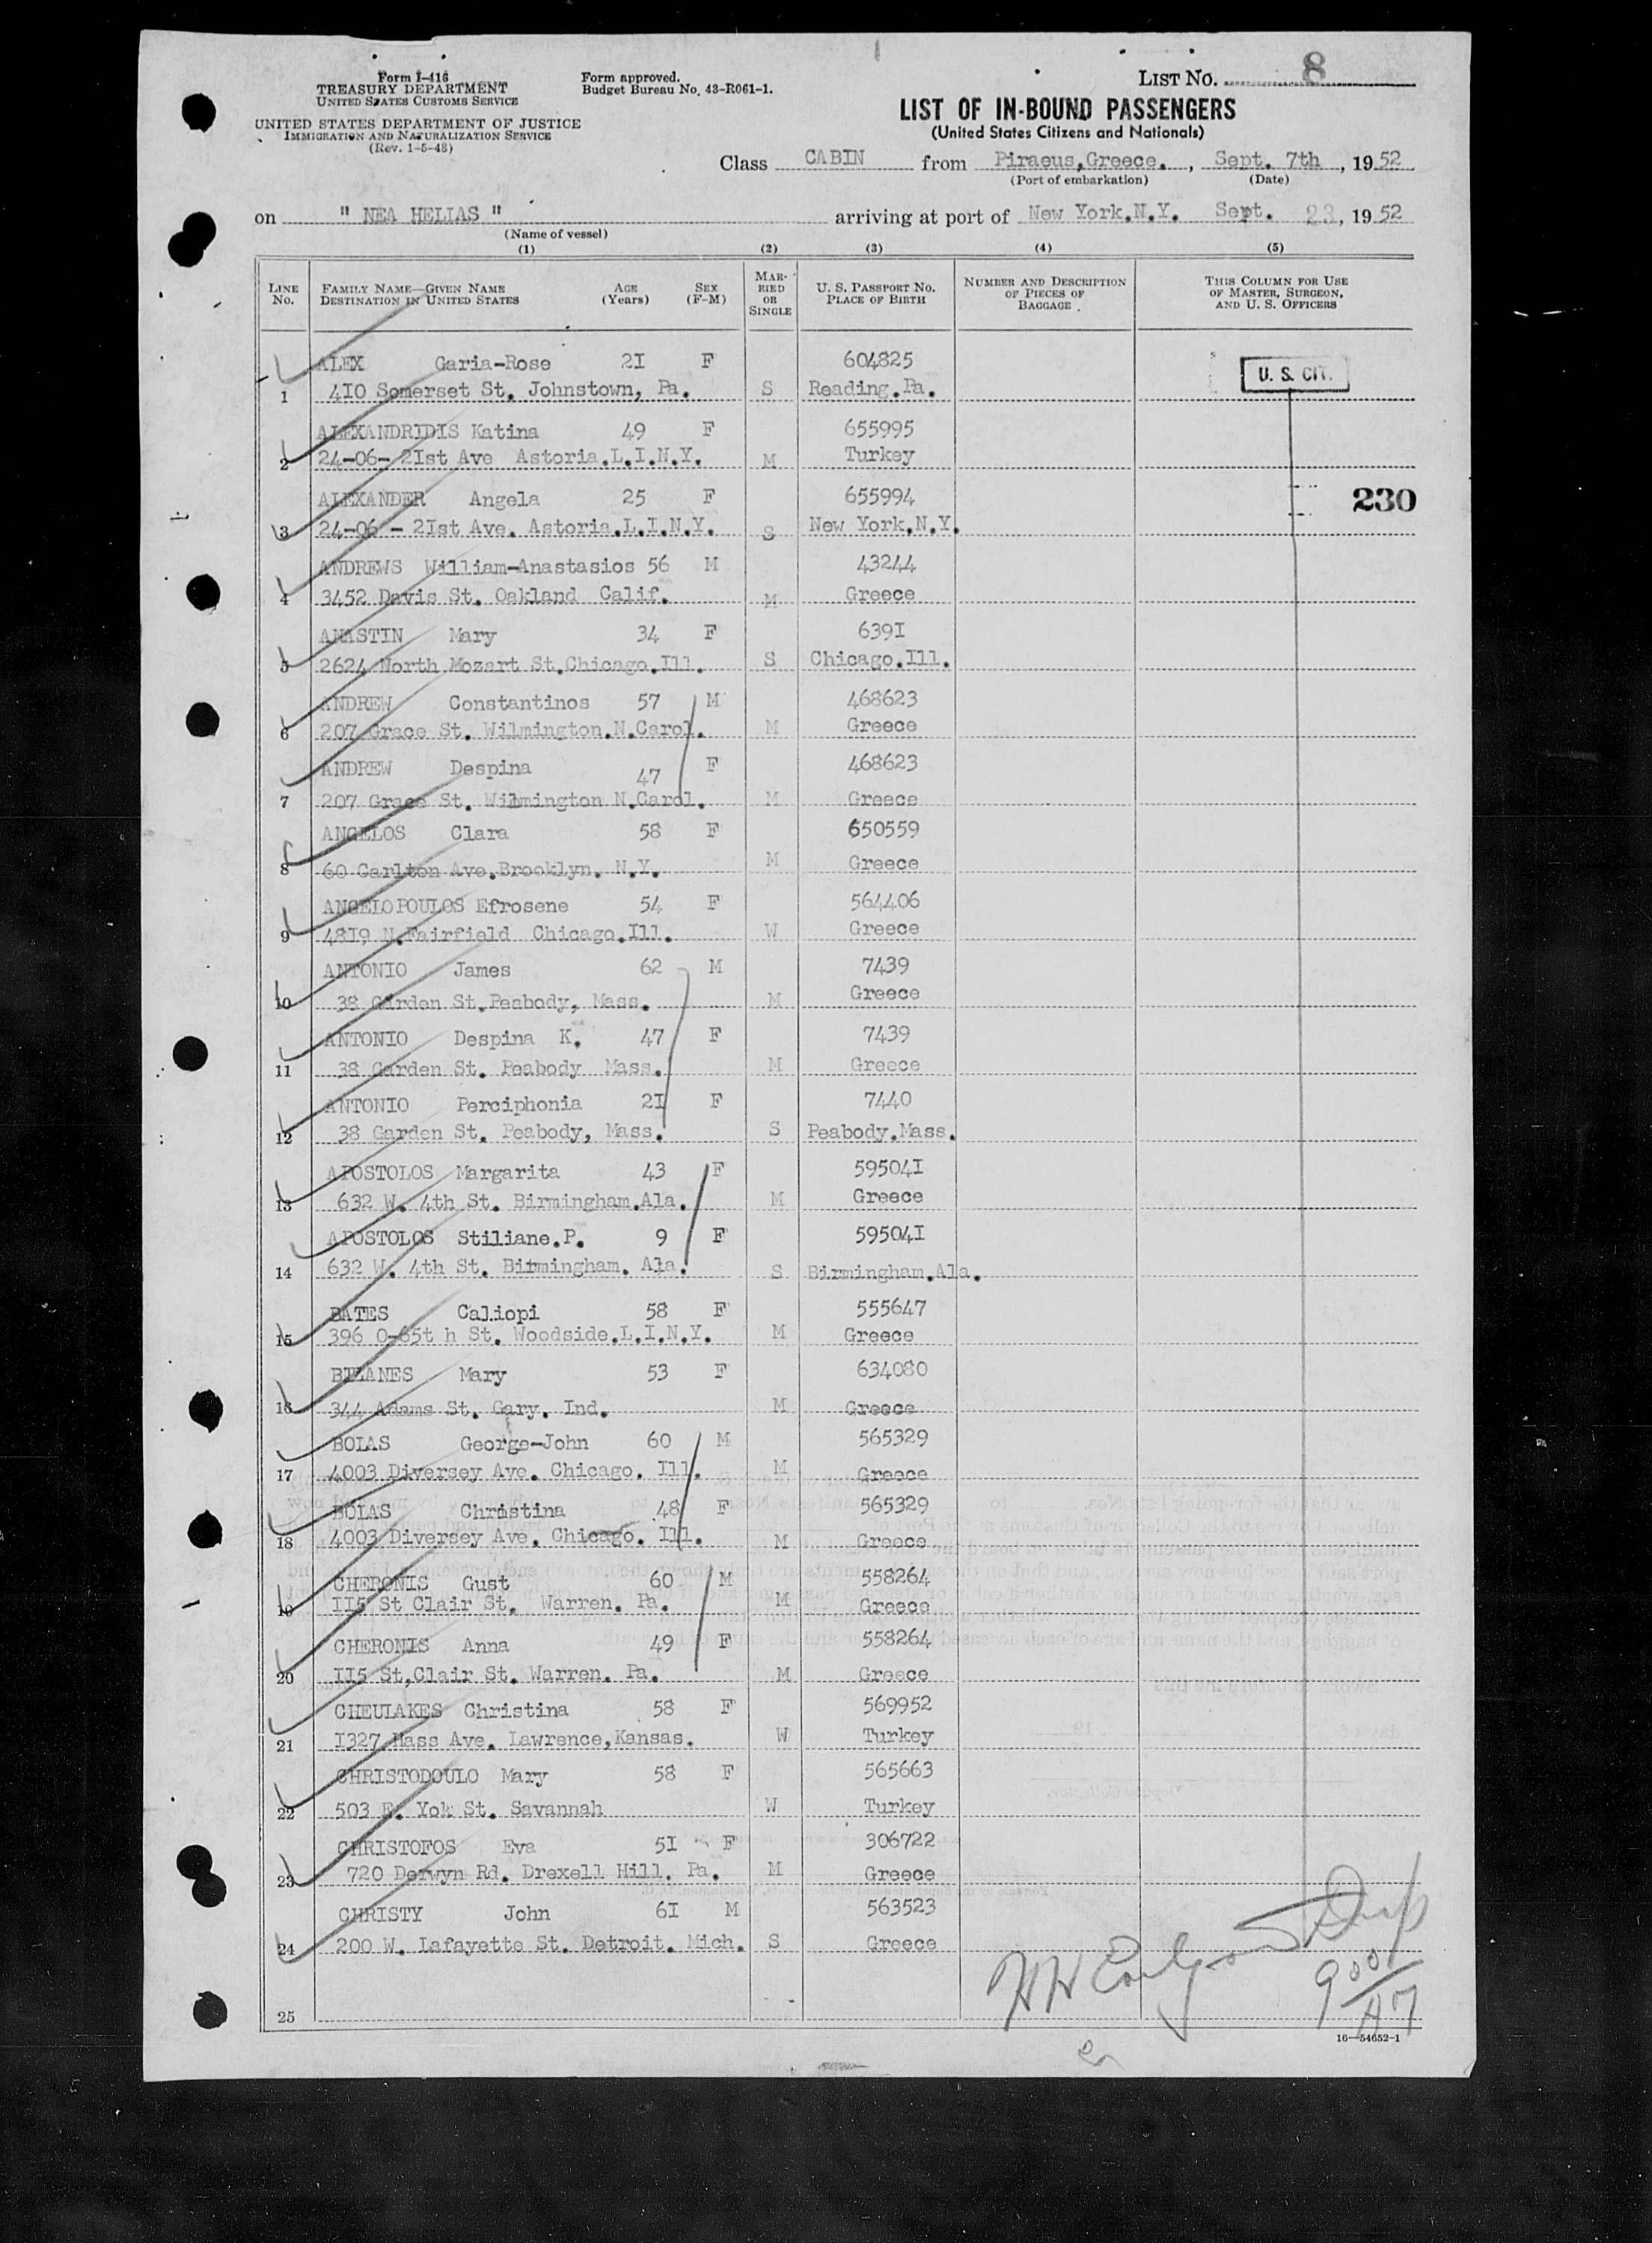 Form I-416
TREASURY DEPARTMENT
UNITED STATES CUSTOMS SERVICE
UNITED STATES DEPARTMENT OF JUSTICE
IMMIGRATION AND NATURALIZATION SERVICE
(Rev. 1-5-48)
Form approved.
Budget Bureau No. 43-R061-1.
LIST NO. 8
LIST OF IN-BOUND PASSENGERS
(United States Citizens and Nationals)
Class CABIN from Piraeus,Greece. , Sept. 7th , 1952
(Port of embarkation) (Date)
on " NEA HELIAS " arriving at port of New York.N.Y. Sept. 23, 1952
(Name of vessel)
(1) (2) (3) (4) (5)
LINE No. FAMILY NAME—GIVEN NAME DESTINATION IN UNITED STATES AGE (Years) SEX (F-M) MARRIED OR SINGLE U. S. PASSPORT NO. PLACE OF BIRTH NUMBER AND DESCRIPTION OF PIECES OF BAGGAGE THIS COLUMN FOR USE OF MASTER, SURGEON, AND U. S. OFFICERS
ALEX Garia-Rose 2I F 604825 U. S. CIT.
1 4I0 Somerset St. Johnstown, Pa. S Reading.Pa.
ALEXANDRIDIS Katina 49 F 655995
2 24-06- 2Ist Ave Astoria.L.I.N.Y. M Turkey
ALEXANDER Angela 25 F 655994 230
3 24-06 - 2Ist Ave. Astoria.L.I.N.Y. S New York.N.Y.
ANDREWS William-Anastasios 56 M 43244
4 3452 Davis St. Oakland Calif. M Greece
ANASTIN Mary 34 F 639I
5 2624 North Mozart St.Chicago.Ill. S Chicago.Ill.
ANDREW Constantinos 57 M 468623
6 207 Grace St. Wilmington.N.Carol. M Greece
ANDREW Despina 47 F 468623
7 207 Grace St. Wilmington N.Carol. M Greece
ANGELOS Clara 58 F 650559
8 60 Carlton Ave.Brooklyn. N.Y. M Greece
ANGELOPOULOS Efrosene 54 F 564406
9 48I9 N.Fairfield Chicago.Ill. W Greece
ANTONIO James 62 M 7439
10 38 Garden St.Peabody, Mass. M Greece
ANTONIO Despina K. 47 F 7439
11 38 Garden St. Peabody Mass. M Greece
ANTONIO Perciphonia 2I F 7440
12 38 Garden St. Peabody, Mass. S Peabody.Mass.
APOSTOLOS Margarita 43 F 59504I
13 632 W. 4th St. Birmingham.Ala. M Greece
APOSTOLOS Stiliane.P. 9 F 59504I
14 632 W. 4th St. Birmingham. Ala. S Birmingham.Ala.
BATES Caliopi 58 F 555647
15 396 0-65t h St. Woodside.L.I.N.Y. M Greece
BILANES Mary 53 F 634080
16 344 Adams St. Gary. Ind. M Greece
BOLAS George-John 60 M 565329
17 4003 Diversey Ave. Chicago. Ill. M Greece
BOLAS Christina 48 F 565329
18 4003 Diversey Ave. Chicago. Ill. M Greece
CHERONIS Gust 60 M 558264
19 II5 St Clair St. Warren. Pa. M Greece
CHERONIS Anna 49 F 558264
20 II5 St,Clair St. Warren. Pa. M Greece
CHEULAKES Christina 58 F 569952
21 I327 Mass Ave. Lawrence,Kansas. W Turkey
CHRISTODOULO Mary 58 F 565663
22 503 E. Yok St. Savannah W Turkey
CHRISTOFOS Eva 5I F 306722
23 720 Derwyn Rd. Drexell Hill. Pa. M Greece
CHRISTY John 6I M 563523
24 200 W. Lafayette St. Detroit. Mich. S Greece
25
16—54652-1